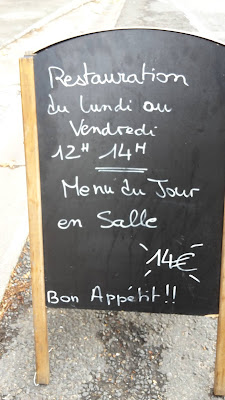 Restauration
du Lundi au
Vendredi
12H 14H
Menu du Jour
en Salle
14€
Bon Appétit!!